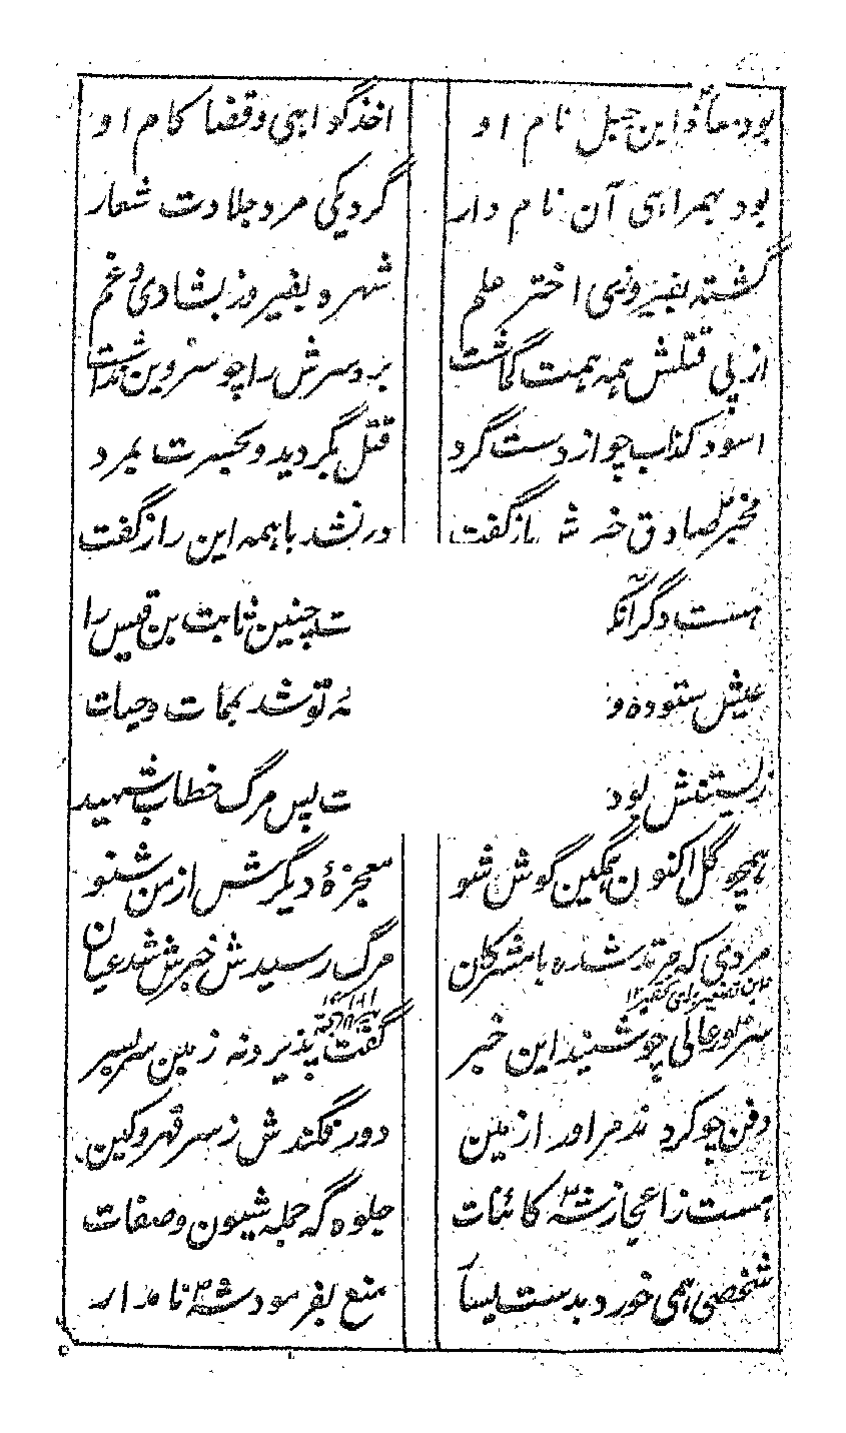 بود معاذ ابن جبل نام او اخذ گواهی و قضا کام او
بود بهمراهی آن نام دار گردیکی مرد جلادت شعار
گشته بفیروزی اختر علم شهره بفیروز بشادی و غم
از پی قتلش همه همت گماشت بر دسرش را چو
اسود کذاب چو از دست گرد قتل بگردید و بحسرت بمرد
مخبر صادق باز گفت در نشد با همه این راز گفت
هست دگر آنکه ت چنین ثابت بن قیس را
عیش ستوده و تو شد بممات و حیات
زیستنش بود ت پس مرگ خطاب شهید
همچو گل اکنون همگین گوش شو معجزهٔ دیگرش از من شنو
مردی که مرتد شده با مشرکان مرگ رسیدش خبرش شد عیان
سرور عالی چو شنید این خبر گفت پذیرد نه زمین سر بسر
دفن چو کردند مر او را زمین دور فگندش ز سر قهر و کین
هست ز اعجاز شه کائنات جلوه گه جمله شیون و صفات
شخصی همی خورد بدست یسار منع بفرمود شه نامدار